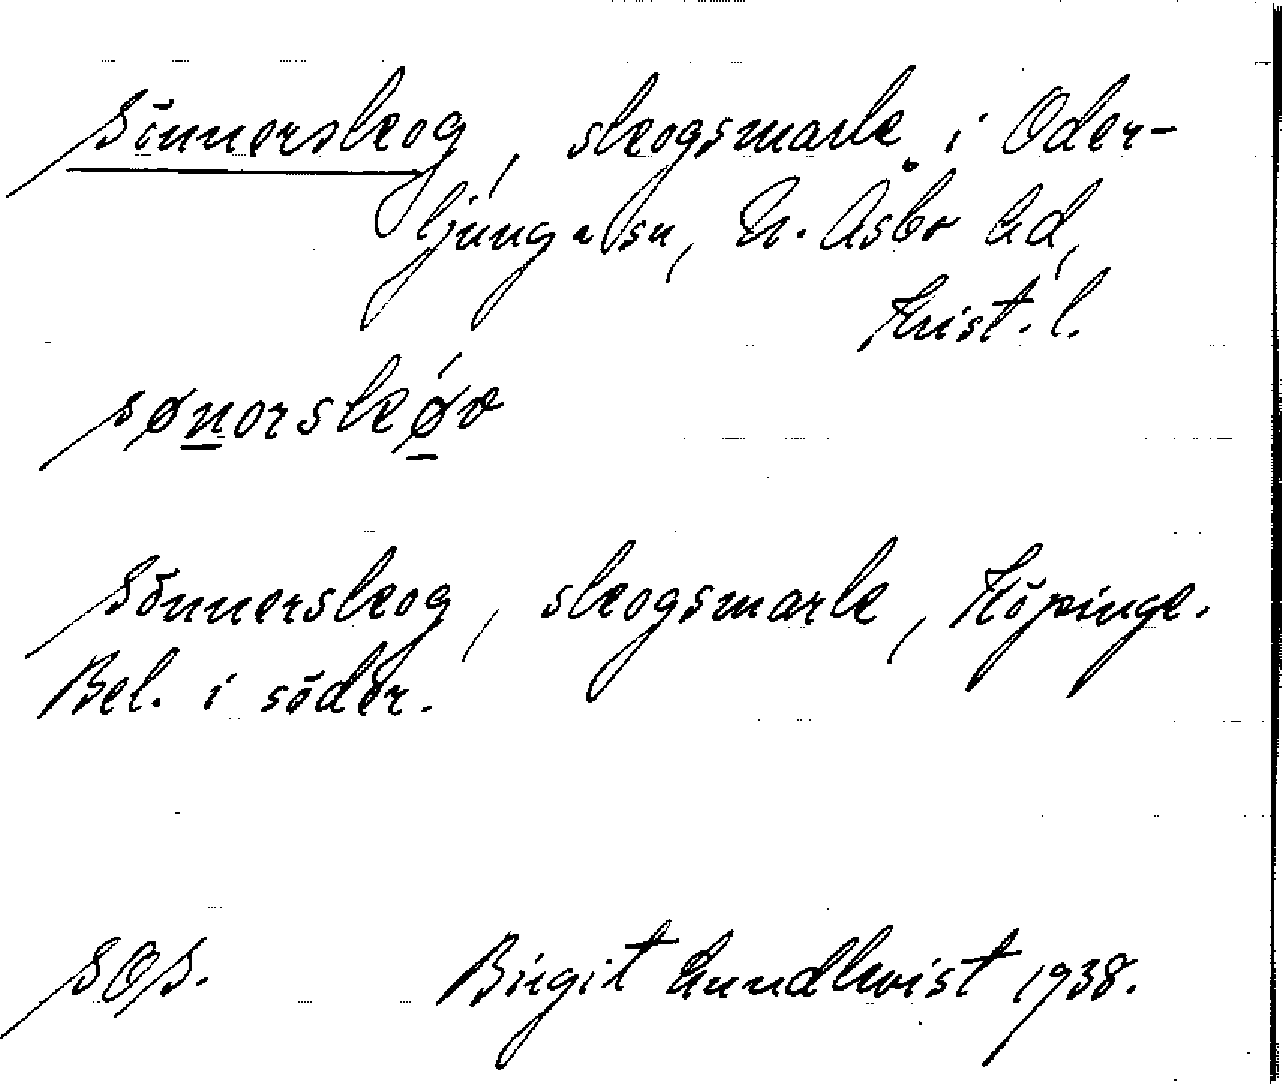 Sönnerskog, skogsmark i Oder-
ljunga sn, N. Åsbo hd,
Krist. l.
sønorskǿv
Sönnerskog, skogsmark, Köpinge.
Bel. i söder.
SOS. Birgit Lundkvist 1938.